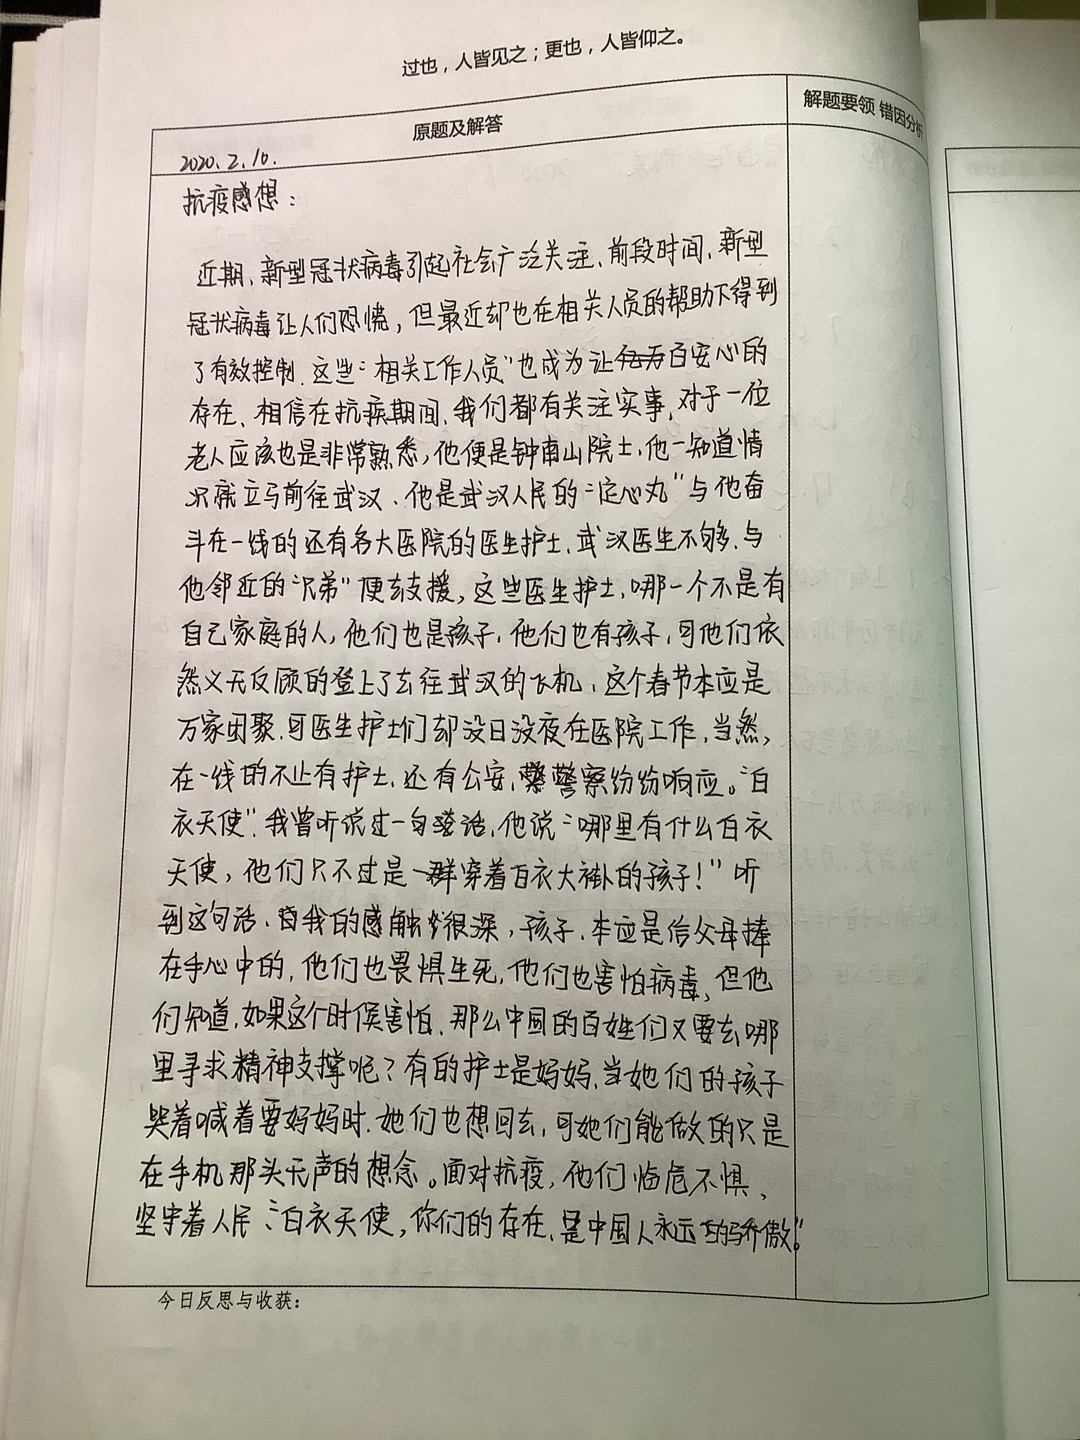 过也，人皆见之；更也，人皆仰之。
原题及解答
解题要领 错因分析
2020.2.10.
抗疫感想：
近期、新型冠状病毒引起社会广泛关注、前段时间、新型
冠状病毒让人们恐慌，但最近却也在相关人员的帮助下得到
了有效控制、这些“相关工作人员”也成为让百安心的
存在、相信在抗疾期间、我们都有关注实事、对于一位
老人应该也是非常熟悉，他便是钟南山院士、他一知道情
况就立马前往武汉、他是武汉人民的“定心丸”与他奋
斗在一线的还有各大医院的医生护士、武汉医生不够、与
他邻近的“兄弟”便去支援，这些医生护士、哪一个不是有
自己家庭的人，他们也是孩子、他们也有孩子，可他们依
然义无反顾的登上了去往武汉的飞机、这个春节本应是
万家团聚、可医生护士们却没日没夜在医院工作，当然，
在一线的不止有护士、还有公安、警察纷纷响应。“白
衣天使”、我曾听说过一句话、他说“哪里有什么白衣
天使，他们只不过是一群穿着白衣大褂的孩子！”听
到这句话、我的感触很深，孩子、本应是给父母捧
在手心中的，他们也畏惧生死，他们也害怕病毒，但他
们知道、如果这个时候害怕、那么中国的百姓们又要去哪
里寻求精神支撑呢？有的护士是妈妈、当她们的孩子
哭着喊着要妈妈时、她们也想回去，可她们能做的只是
在手机那头无声的想念。面对抗疫，他们临危不惧、
坚守着人民“白衣天使，你们的存在、是中国人永远的骄傲。”
今日反思与收获：